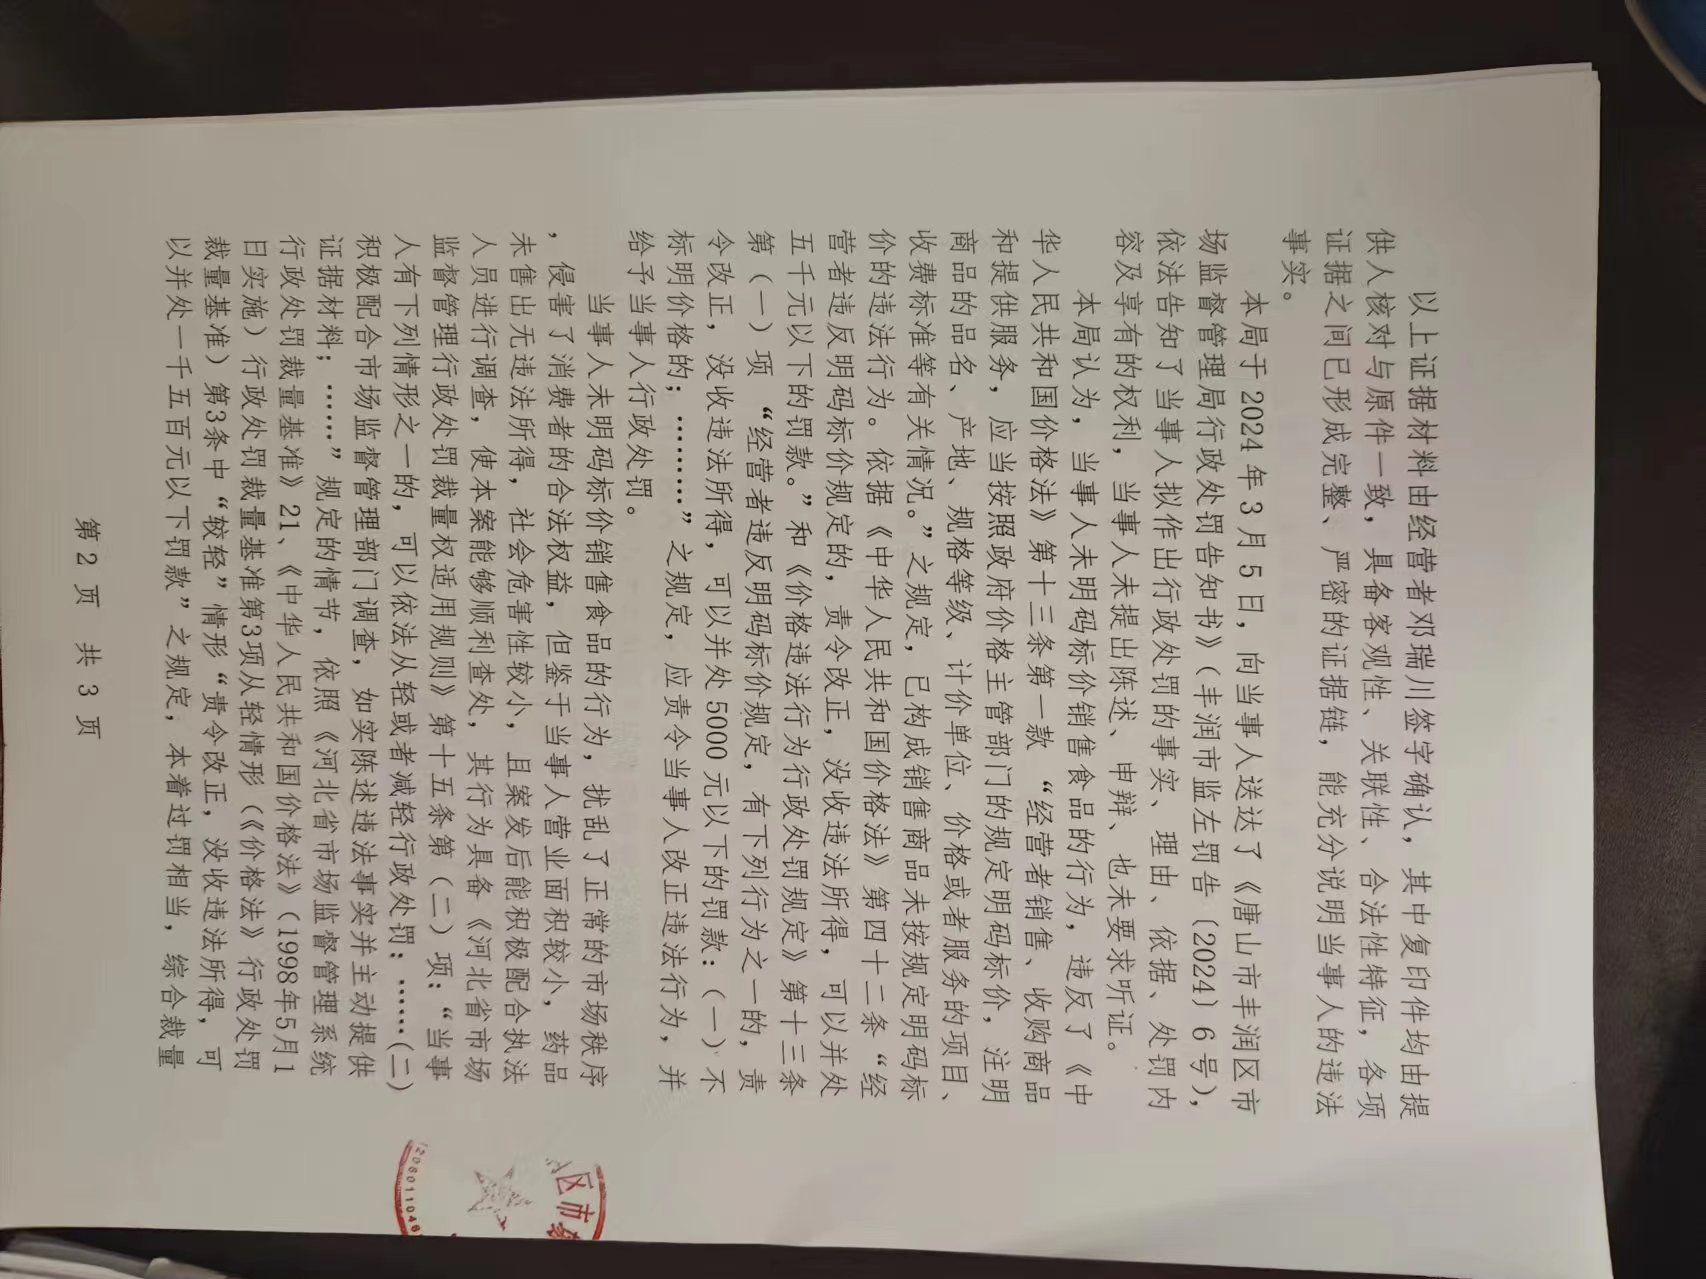 以上证据材料由经营者邓瑞川签字确认，其中复印件均由提
供人核对与原件一致，具备客观性、关联性、合法性特征，各项
证据之间已形成完整、严密的证据链，能充分说明当事人的违法
事实。
本局于2024年3月5日，向当事人送达了《唐山市丰润区市
场监督管理局行政处罚告知书》（丰润市监左罚告〔2024〕6号），
依法告知了当事人拟作出行政处罚的事实、理由、依据、处罚内
容及享有的权利，当事人未提出陈述、申辩、也未要求听证。
本局认为，当事人未明码标价销售食品的行为，违反了《中
华人民共和国价格法》第十三条第一款“经营者销售、收购商品
和提供服务，应当按照政府价格主管部门的规定明码标价，注明
商品的品名、产地、规格等级、计价单位、价格或者服务的项目、
收费标准等有关情况。”之规定，已构成销售商品未按规定明码标
价的违法行为。依据《中华人民共和国价格法》第四十二条“经
营者违反明码标价规定的，责令改正，没收违法所得，可以并处
五千元以下的罚款。”和《价格违法行为行政处罚规定》第十三条
第（一）项 “经营者违反明码标价规定，有下列行为之一的，责
令改正，没收违法所得，可以并处5000元以下的罚款：（一）不
标明价格的；………”之规定，应责令当事人改正违法行为，并
给予当事人行政处罚。
当事人未明码标价销售食品的行为，扰乱了正常的市场秩序
，侵害了消费者的合法权益，但鉴于当事人营业面积较小，药品
未售出无违法所得，社会危害性较小，且案发后能积极配合执法
人员进行调查，使本案能够顺利查处，其行为具备《河北省市场
监督管理行政处罚裁量权适用规则》第十五条第（二）项：“当事
人有下列情形之一的，可以依法从轻或者减轻行政处罚：……(二)
积极配合市场监督管理部门调查，如实陈述违法事实并主动提供
证据材料；……”规定的情节，依照《河北省市场监督管理系统
行政处罚裁量基准》21、《中华人民共和国价格法》（1998年5月1
日实施）行政处罚裁量基准第3项从轻情形（《价格法》行政处罚
裁量基准）第3条中“较轻”情形“责令改正，没收违法所得，可
以并处一千五百元以下罚款”之规定，本着过罚相当，综合裁量
第 2 页 共 3 页
区市